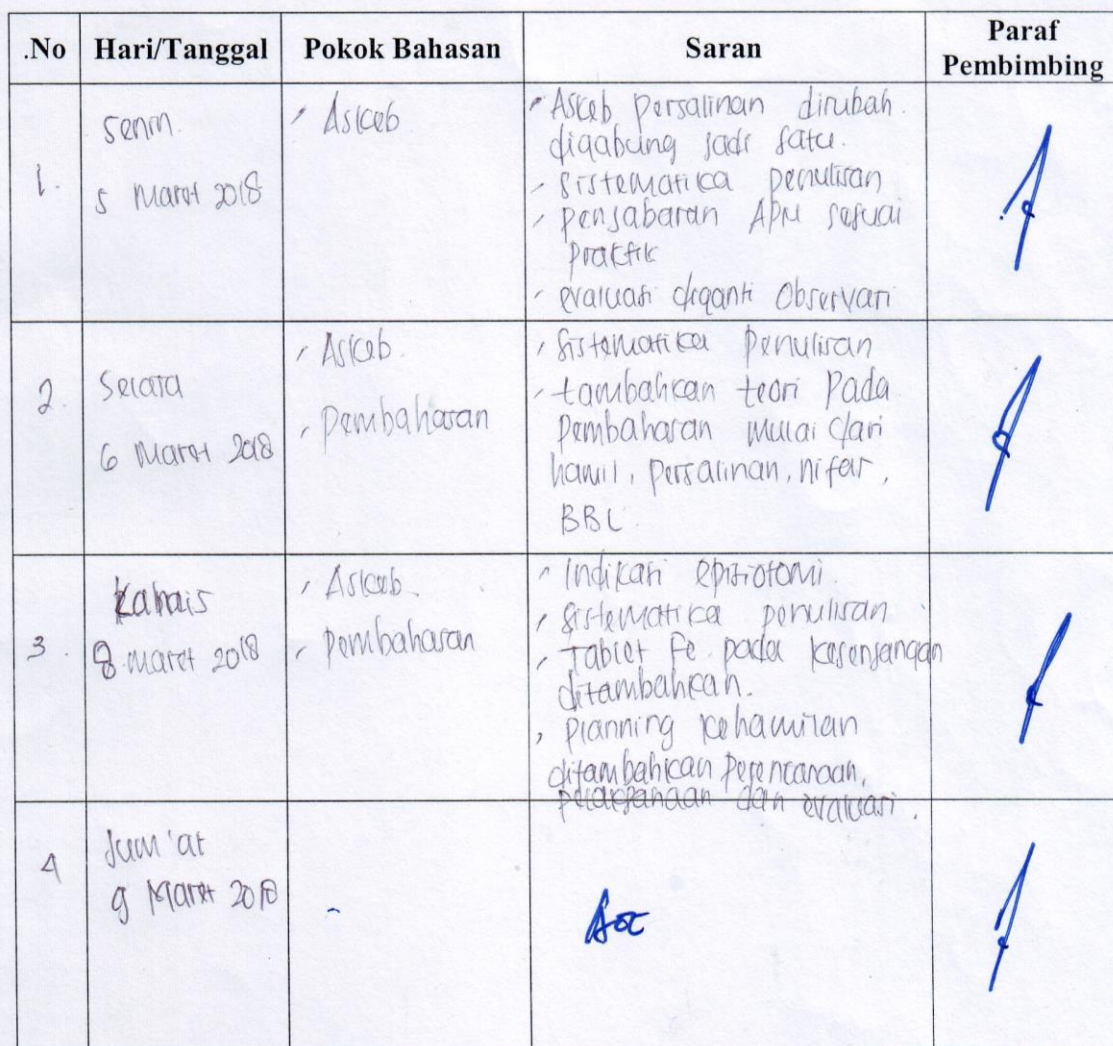 .No Hari/Tanggal Pokok Bahasan Saran Paraf Pembimbing
1. Senin 5 Maret 2018
- Askeb
- Askeb persalinan dirubah
digabung jadi satu.
- sistematika penulisan
- penjabaran APN sesuai
praktik
- evaluasi diganti Observasi
2. Selasa 6 Maret 2018
- Askeb
- Pembahasan
- Sistematika penulisan
- tambahkan teori pada
pembahasan mulai dari
hamil, persalinan, nifas,
BBL
3. Kamis 8 maret 2018
- Askeb
- pembahasan
- Indikasi episiotomi
- sistematika penulisan
- Tablet Fe pada kesenjangan
ditambahkan.
- planning kehamilan
ditambahkan perencanaan,
pelaksanaan dan evaluasi.
4 Jum'at 9 Maret 2018
-
Acc